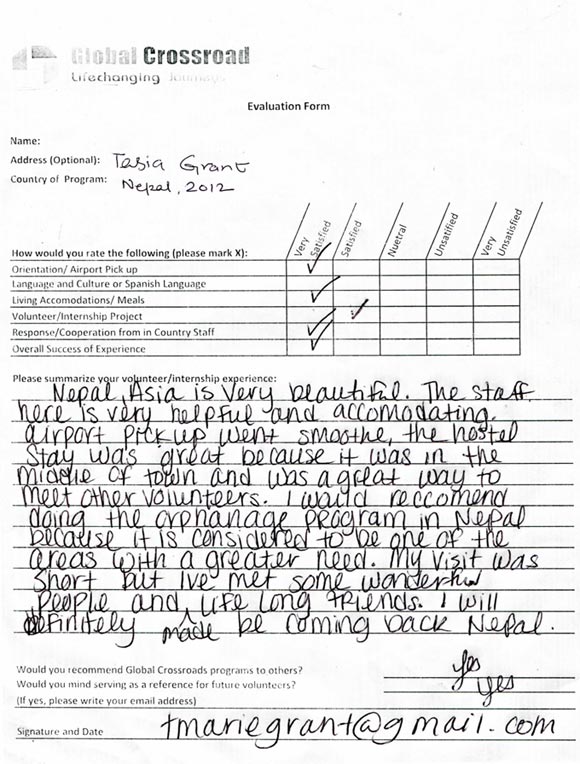 Global Crossroad
Lifechanging Journeys
Evaluation Form
Name:
Address (Optional): Tasia Grant
Country of Program: Nepal, 2012
How would you rate the following (please mark X):
Very Satisfied
Satisfied
Nuetral
Unsatified
Very Unsatisfied
Orientation/ Airport Pick up
Language and Culture or Spanish Language
Living Accomodations/ Meals
Volunteer/Internship Project
Response/Cooperation from in Country Staff
Overall Success of Experience
Please summarize your volunteer/internship experience:
Nepal, Asia is very beautiful. The staff
here is very helpful and accomodating.
airport pick up went smoothe, the hostel
stay was great because it was in the
middle of town and was a great way to
meet other volunteers. I would reccomend
doing the orphanage program in Nepal
because it is considered to be one of the
areas with a greater need. My visit was
short but Ive met some wonderful
people and made life long friends. I will
definitely be coming back Nepal.
Would you recommend Global Crossroads programs to others? yes
Would you mind serving as a reference for future volunteers? yes
(If yes, please write your email address)
Signature and Date tmariegrant@gmail.com